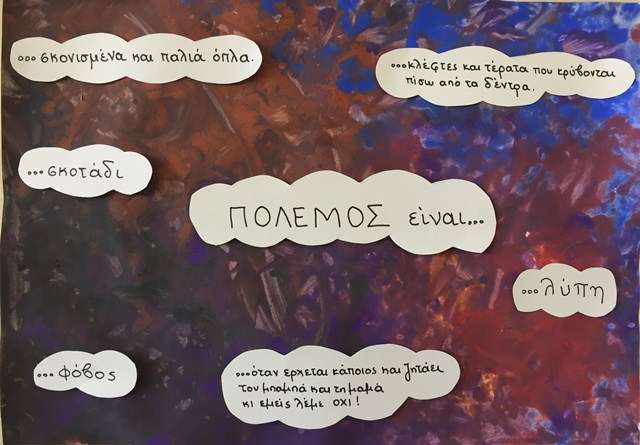 ...σκονισμένα και παλιά όπλα.
...κλέφτες και τέρατα που κρύβονται
πίσω από τα δέντρα.
...σκοτάδι
ΠΟΛΕΜΟΣ είναι...
...λύπη
...φόβος
...όταν έρχεται κάποιος και ζητάει
τον μπαμπά και τη μαμά
κι εμείς λέμε ΟΧΙ!